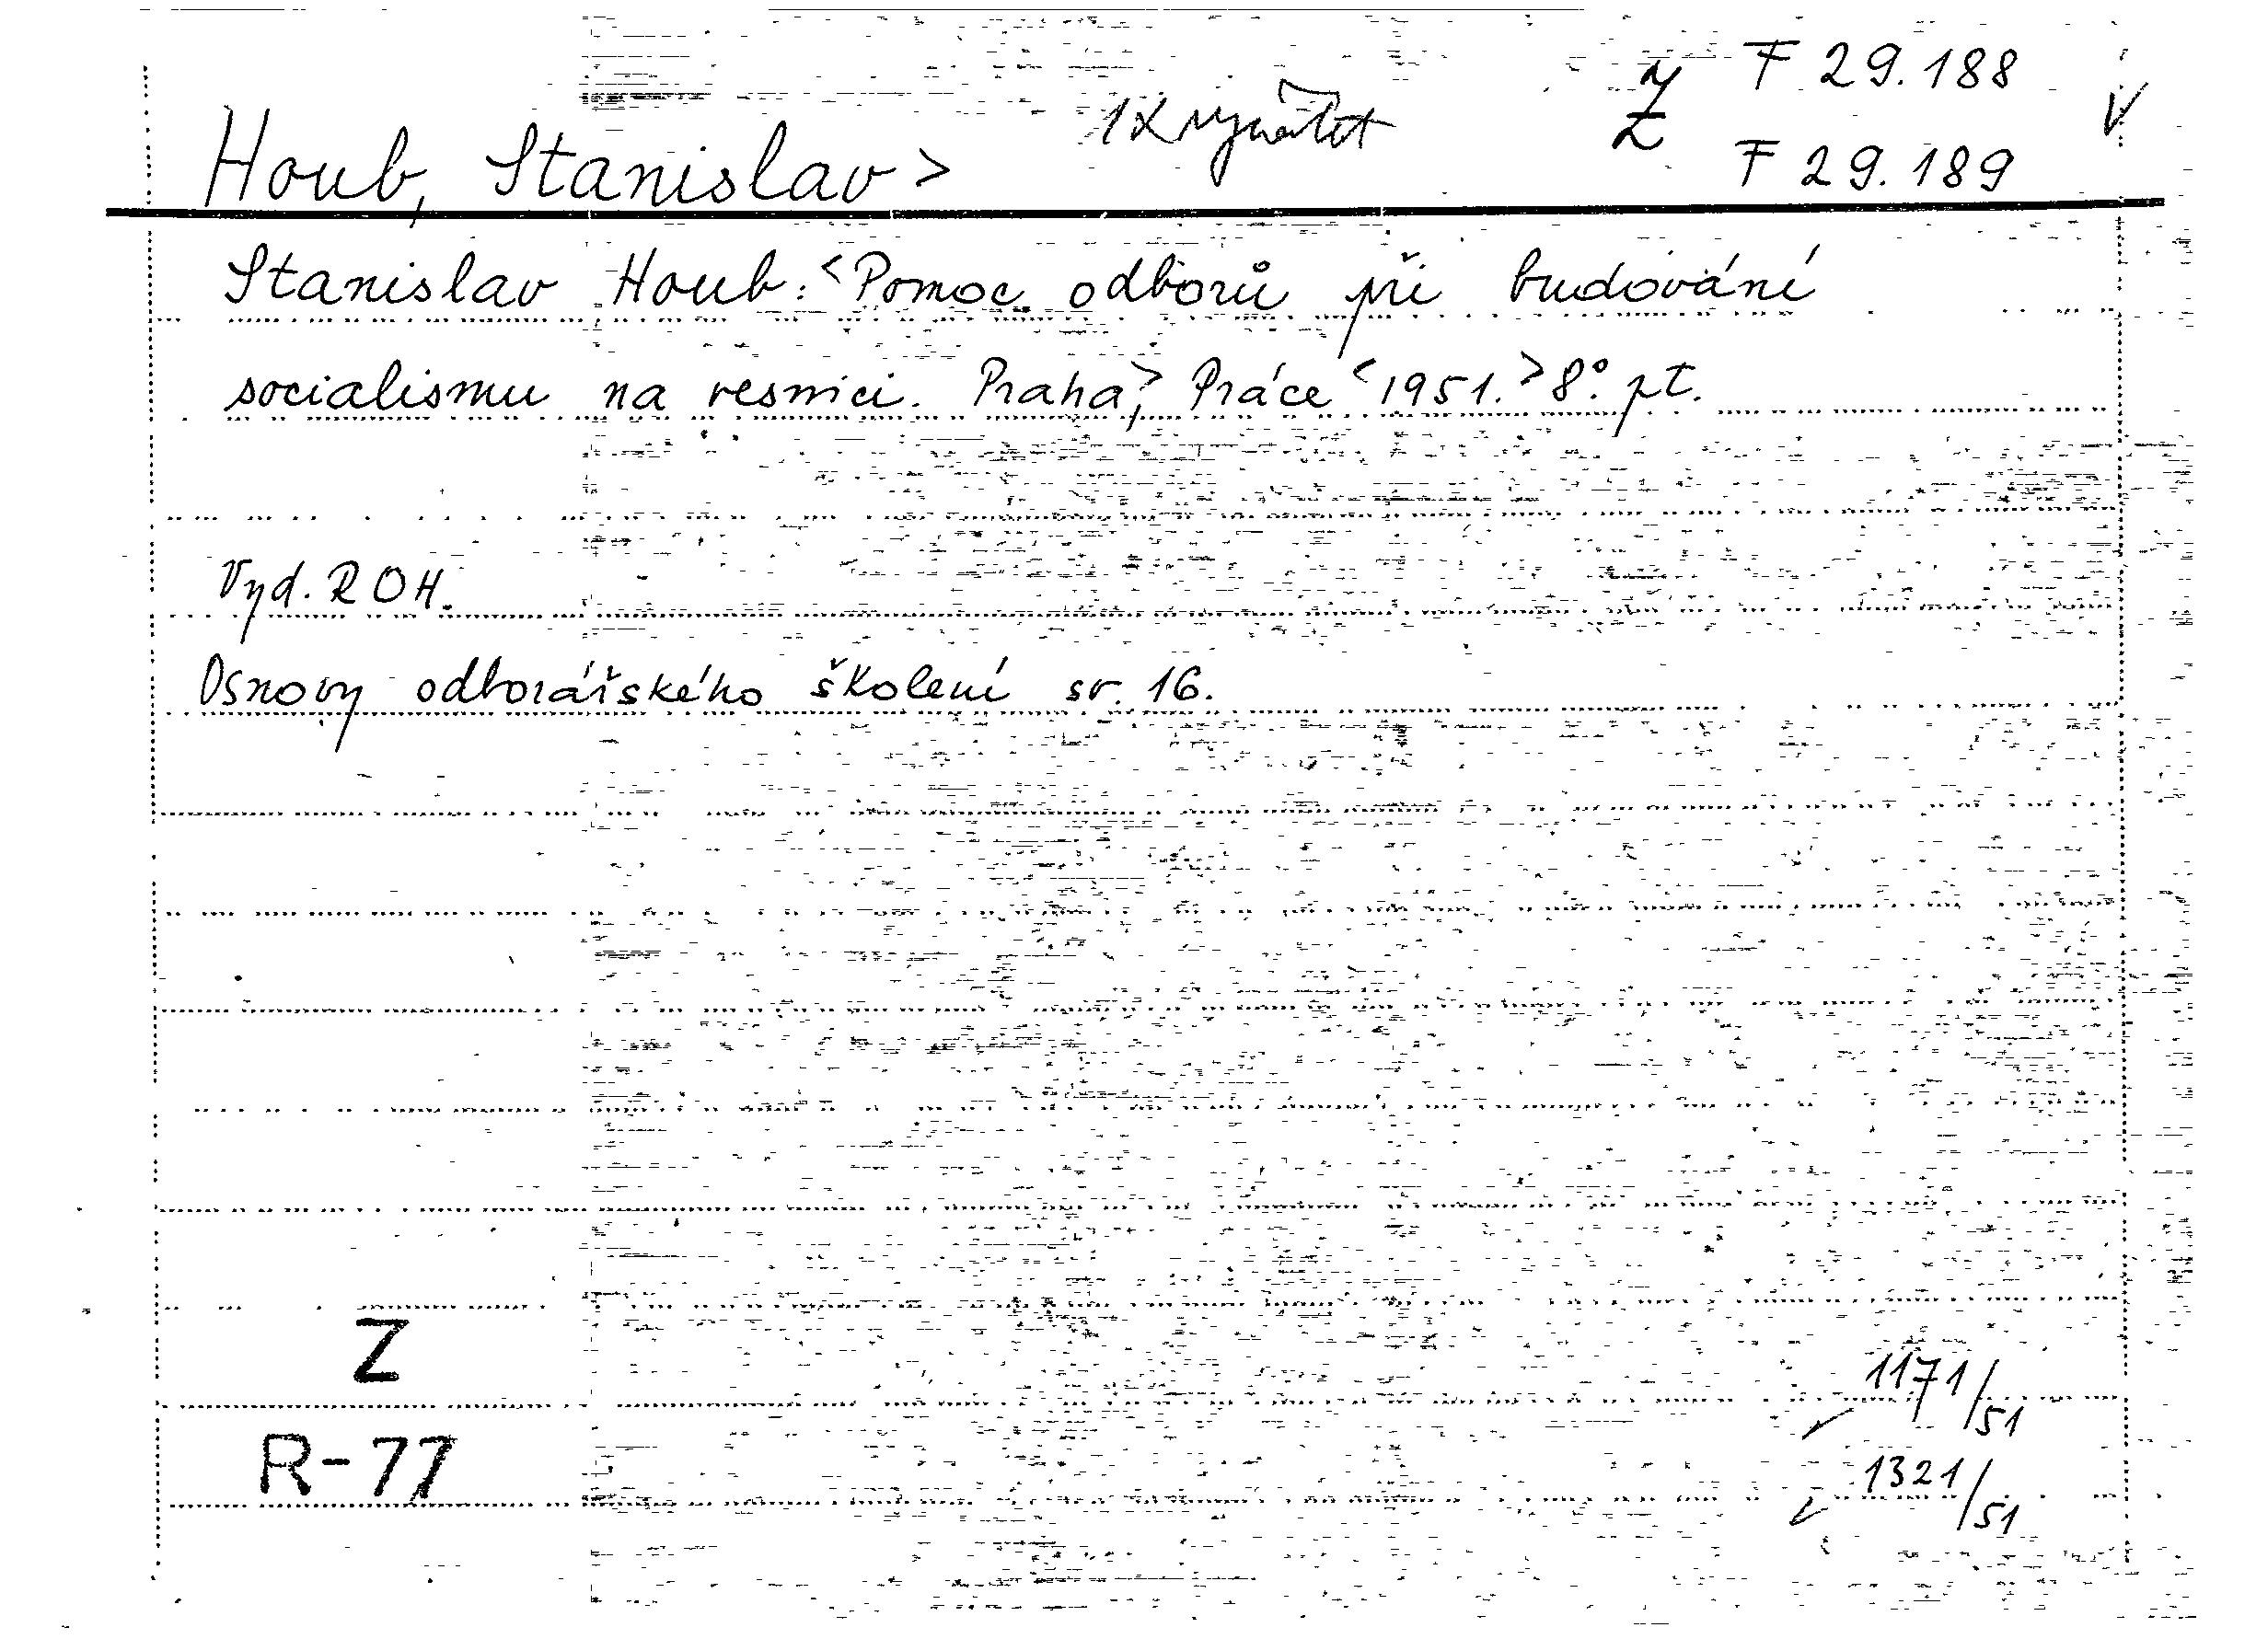 F 29.188
Z
1x vyřadit
V
Houb, Stanislav >
F 29.189
Stanislav Houb: <Pomoc odborů při budování
socialismu na vesnici. Praha,> Práce <1951.> 8°. pt.
Vyd. ROH.
Osnovy odborářského školení sv. 16.
Z
1171/51
R-77
1321/51